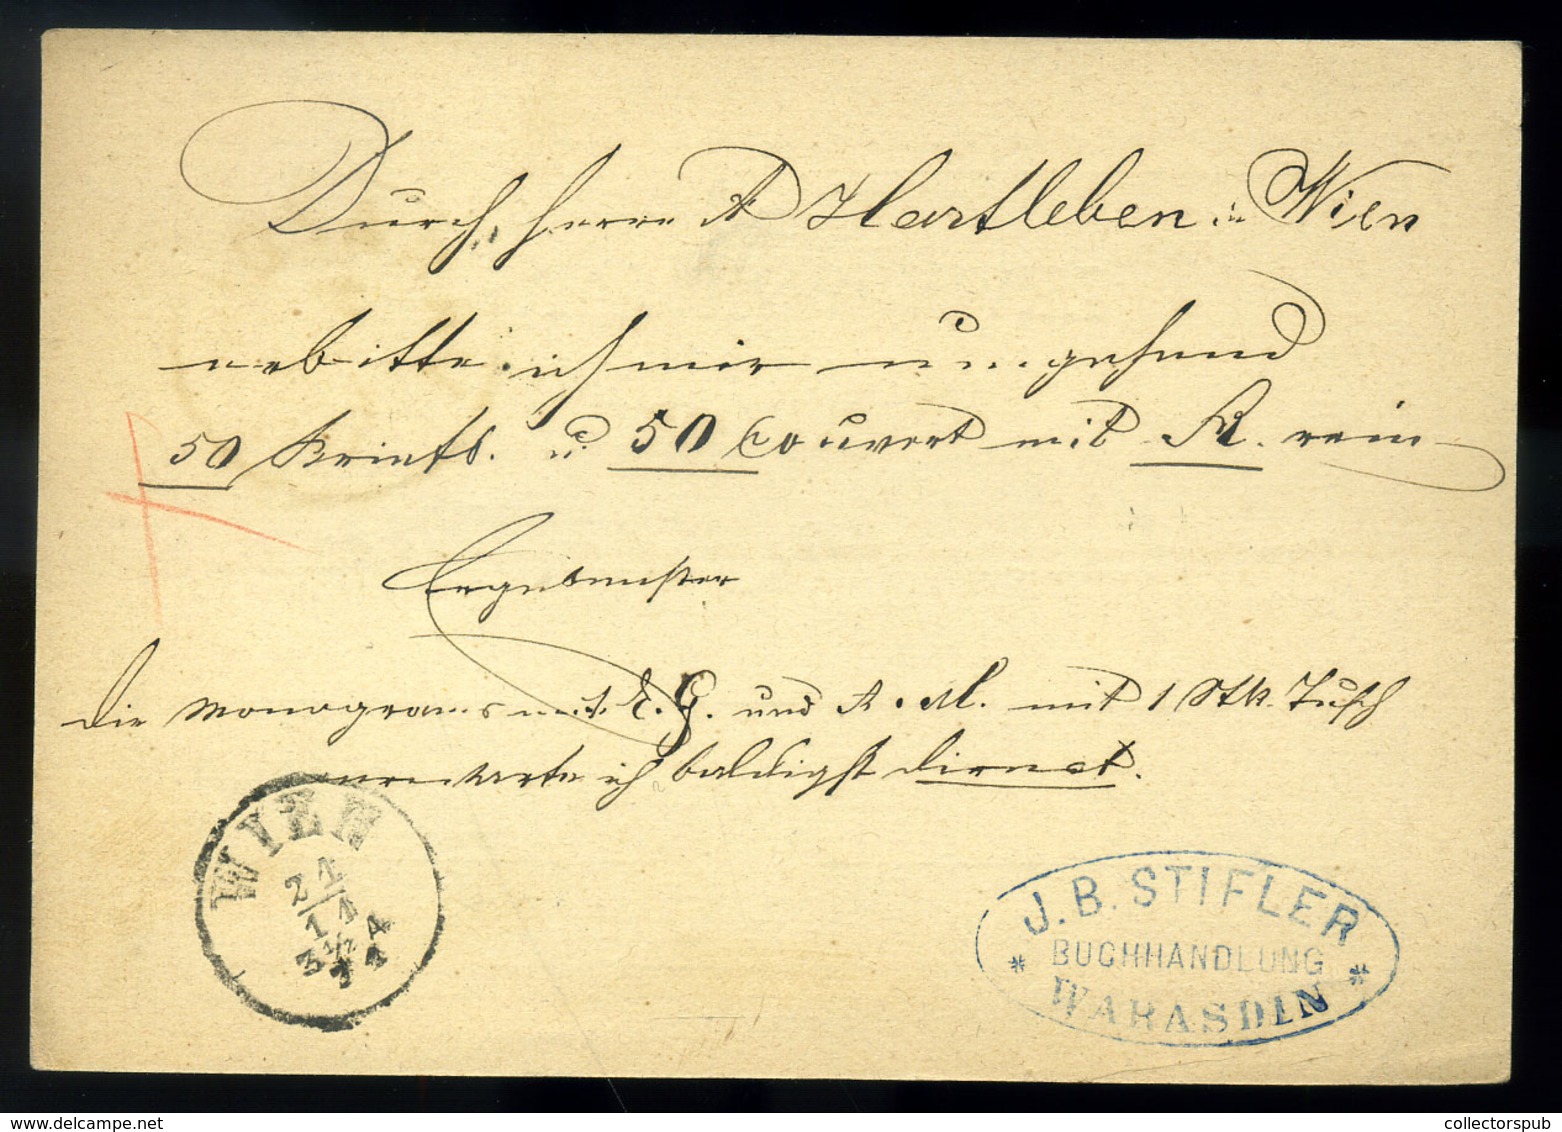 Durch Herrn A Hartleben in Wien
erbitte ich mir umgehend
50 Briefb. u 50 Couvert mit R. rein
Ergebenster
Die Monogramms mit E. G. und A. M. mit 1 Stk. Tusch
erwarte ich baldigst direct.
WIEN
21
11
3½ A
J. B. STIFLER
BUCHHANDLUNG
WARASDIN
collectorspub